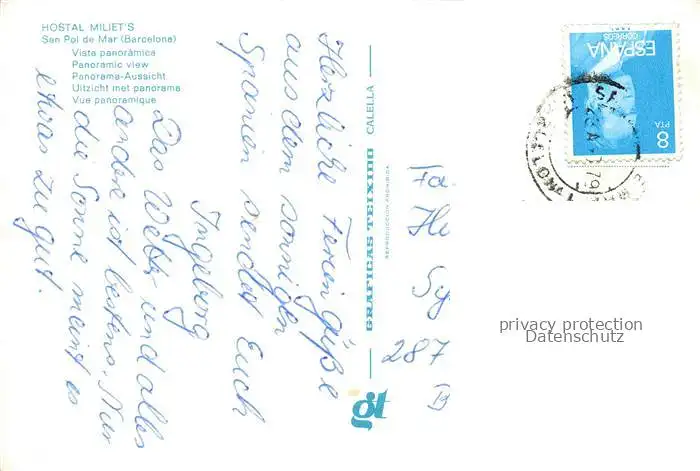 HOSTAL MILIET'S
San Pol de Mar (Barcelona)
Vista panorámica
Panoramic view
Panorama-Aussicht
Uitzicht met panorama
Vue panoramique
Herzliche Feriengrüße
aus dem sonnigen
Spanien sendet Euch
Ingeborg
Das Wetter und alles
andere ist bestens. Nur
die Sonne meint es
etwas zu gut.
GRAFICAS TEIXIDO CALELLA
REPRODUCCION PROHIBIDA
gt
Fa.
287
ESPAÑA
CORREOS
8
PTA
privacy protection
Datenschutz